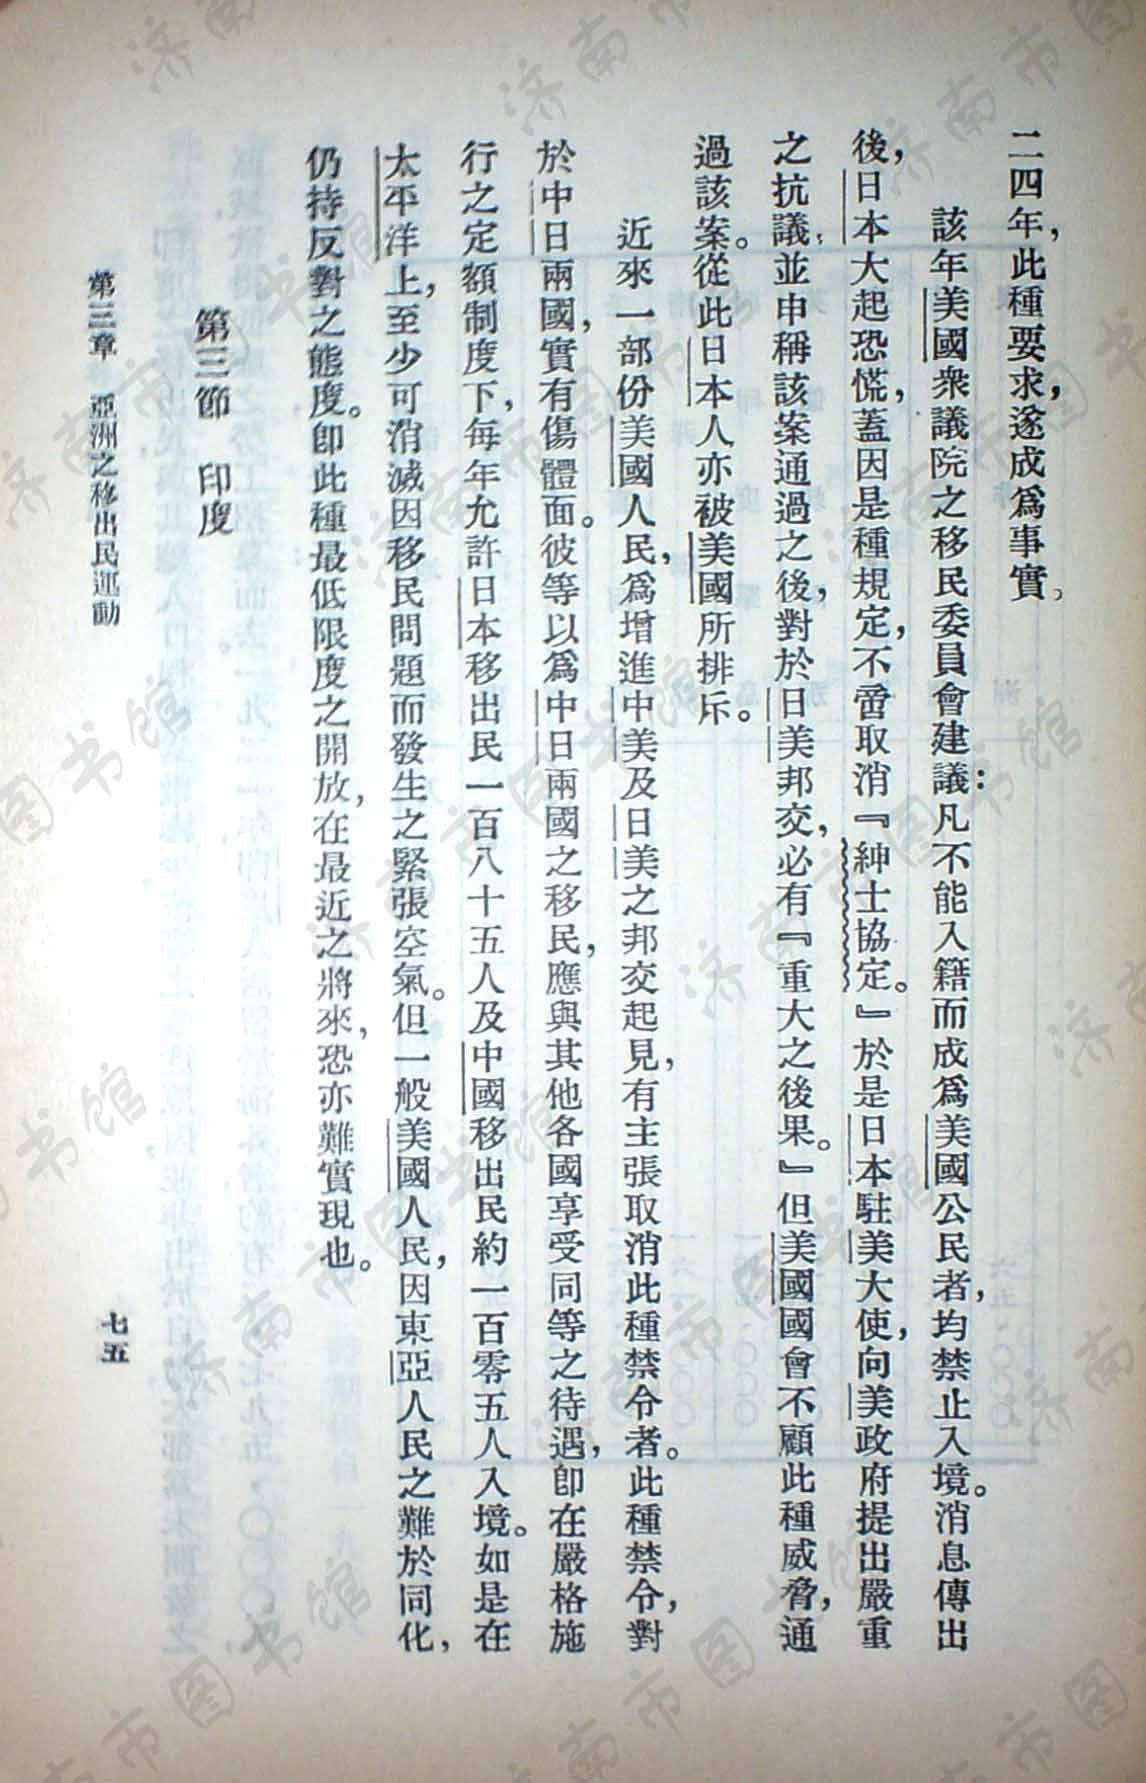 二四年，此種要求，遂成爲事實。
該年美國衆議院之移民委員會建議：凡不能入籍而成爲美國公民者，均禁止入境。消息傳出
後，日本大起恐慌，蓋因是種規定，不啻取消『紳士協定。』於是日本駐美大使，向美政府提出嚴重
之抗議，並申稱該案通過之後，對於日美邦交，必有『重大之後果。』但美國國會不顧此種威脅，通
過該案。從此日本人亦被美國所排斥。
近來一部份美國人民，爲增進中美及日美之邦交起見，有主張取消此種禁令者。此種禁令，對
於中日兩國，實有傷體面。彼等以爲中日兩國之移民，應與其他各國享受同等之待遇，卽在嚴格施
行之定額制度下，每年允許日本移出民一百八十五人及中國移出民約一百零五人入境。如是在
太平洋上，至少可消滅因移民問題而發生之緊張空氣。但一般美國人民，因東亞人民之難於同化，
仍持反對之態度。卽此種最低限度之開放，在最近之將來，恐亦難實現也。
第三節　印度
第三章　亞洲之移出民運動
七五
济南市图书馆